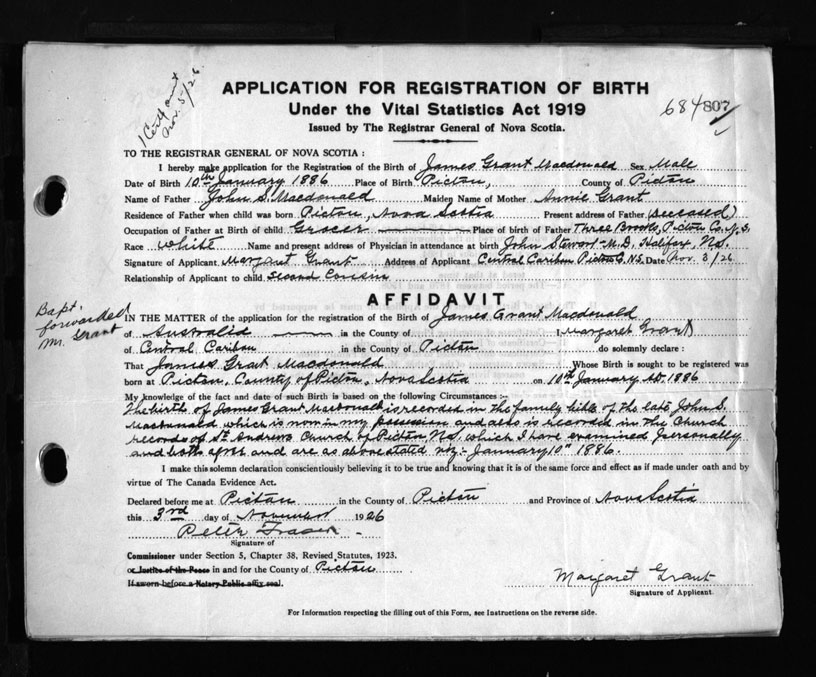 1 Certf sent
Nov. 5/26
APPLICATION FOR REGISTRATION OF BIRTH
Under the Vital Statistics Act 1919
684807
Issued by The Registrar General of Nova Scotia.
TO THE REGISTRAR GENERAL OF NOVA SCOTIA :
I hereby make application for the Registration of the Birth of James Grant Macdonald Sex Male
Date of Birth 10th January 1886 Place of Birth Pictou, County of Pictou
Name of Father John S. Macdonald Maiden Name of Mother Annie Grant
Residence of Father when child was born Pictou, Nova Scotia Present address of Father (deceased)
Occupation of Father at Birth of child Grocer Place of birth of Father Three Brooks, Pictou Co. N.S.
Race White Name and present address of Physician in attendance at birth John Stewart M.D, Halifax, N.S.
Signature of Applicant Margaret Grant Address of Applicant Central Caribou Pictou Co. N.S. Date Nov. 3/26
Relationship of Applicant to child Second Cousin
AFFIDAVIT
Bapt.
forwarded
Mr. Grant
IN THE MATTER of the application for the registration of the Birth of James Grant Macdonald
of Australia in the County of I Margaret Grant
of Central Caribou in the County of Pictou do solemnly declare :
That James Grant Macdonald Whose Birth is sought to be registered was
born at Pictou, County of Pictou, Nova Scotia on 10th January 1886
My knowledge of the fact and date of such Birth is based on the following Circumstances :-
The birth of James Grant Macdonald is recorded in the family bible of the late John S.
Macdonald which is now in my possession and also is recorded in the Church
records of St Andrews Church of Pictou N.S, which I have examined personally
and both agree and are as above stated viz:- January 10" 1886.
I make this solemn declaration conscientiously believing it to be true and knowing that it is of the same force and effect as if made under oath and by
virtue of The Canada Evidence Act.
Declared before me at Pictou in the County of Pictou and Province of Nova Scotia
this 3rd day of November 1926
Peter Fraser
Signature of
Commissioner under Section 5, Chapter 38, Revised Statutes, 1923.
or Justice of the Peace in and for the County of Pictou
If sworn before a Notary Public affix seal.
Margaret Grant
Signature of Applicant.
For Information respecting the filling out of this Form, see Instructions on the reverse side.